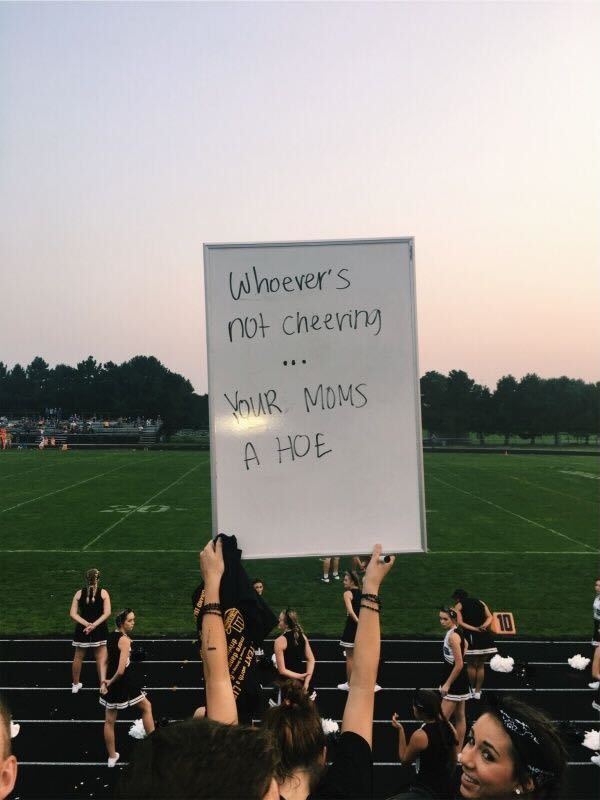 Whoever's
not cheering
...
YOUR MOMS
A HOE
10